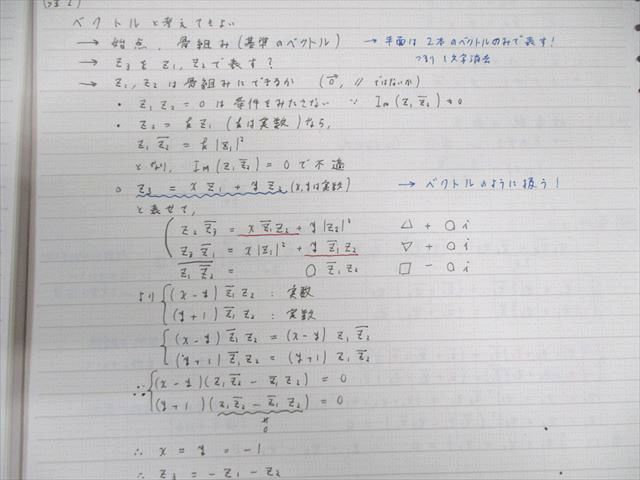 (注2)
ベクトルと考えてもよい
→ 始点, 骨組み (基準のベクトル) → 平面は2本のベクトルのみで表す!
つまり1文字消去
→ z₃ を z₁, z₂ で表す?
→ z₁, z₂ は骨組みにできるか (0⃗, // ではないか)
・ z₁ z₂ = 0 は条件をみたさない ∵ Im(z₁ z̄₂) ≠ 0
・ z₂ = k z₁ (kは実数) なら,
z₁ z̄₂ = k |z₁|²
となり, Im(z₁ z̄₂) = 0 で不適
○ z₃ = x z₁ + y z₂ (x,yは実数) → ベクトルのように扱う!
と表せて,
z₂ z̄₃ = x z̄₁ z₂ + y |z₂|² △ + ○ i
z₃ z̄₁ = x |z₁|² + y z̄₁ z₂ ▽ + ○ i
z₁ z̄₂ = ○ z̄₁ z₂ □ - ○ i
より (x-y) z̄₁ z₂ : 実数
(y+1) z̄₁ z₂ : 実数
(x-y) z̄₁ z₂ = (x-y) z₁ z̄₂
(y+1) z̄₁ z₂ = (y+1) z₁ z̄₂
∴ (x-y)(z₁ z̄₂ - z̄₁ z₂) = 0
(y+1)(z₁ z̄₂ - z̄₁ z₂) = 0
≠
0
∴ x = y = -1
∴ z₃ = -z₁ - z₂